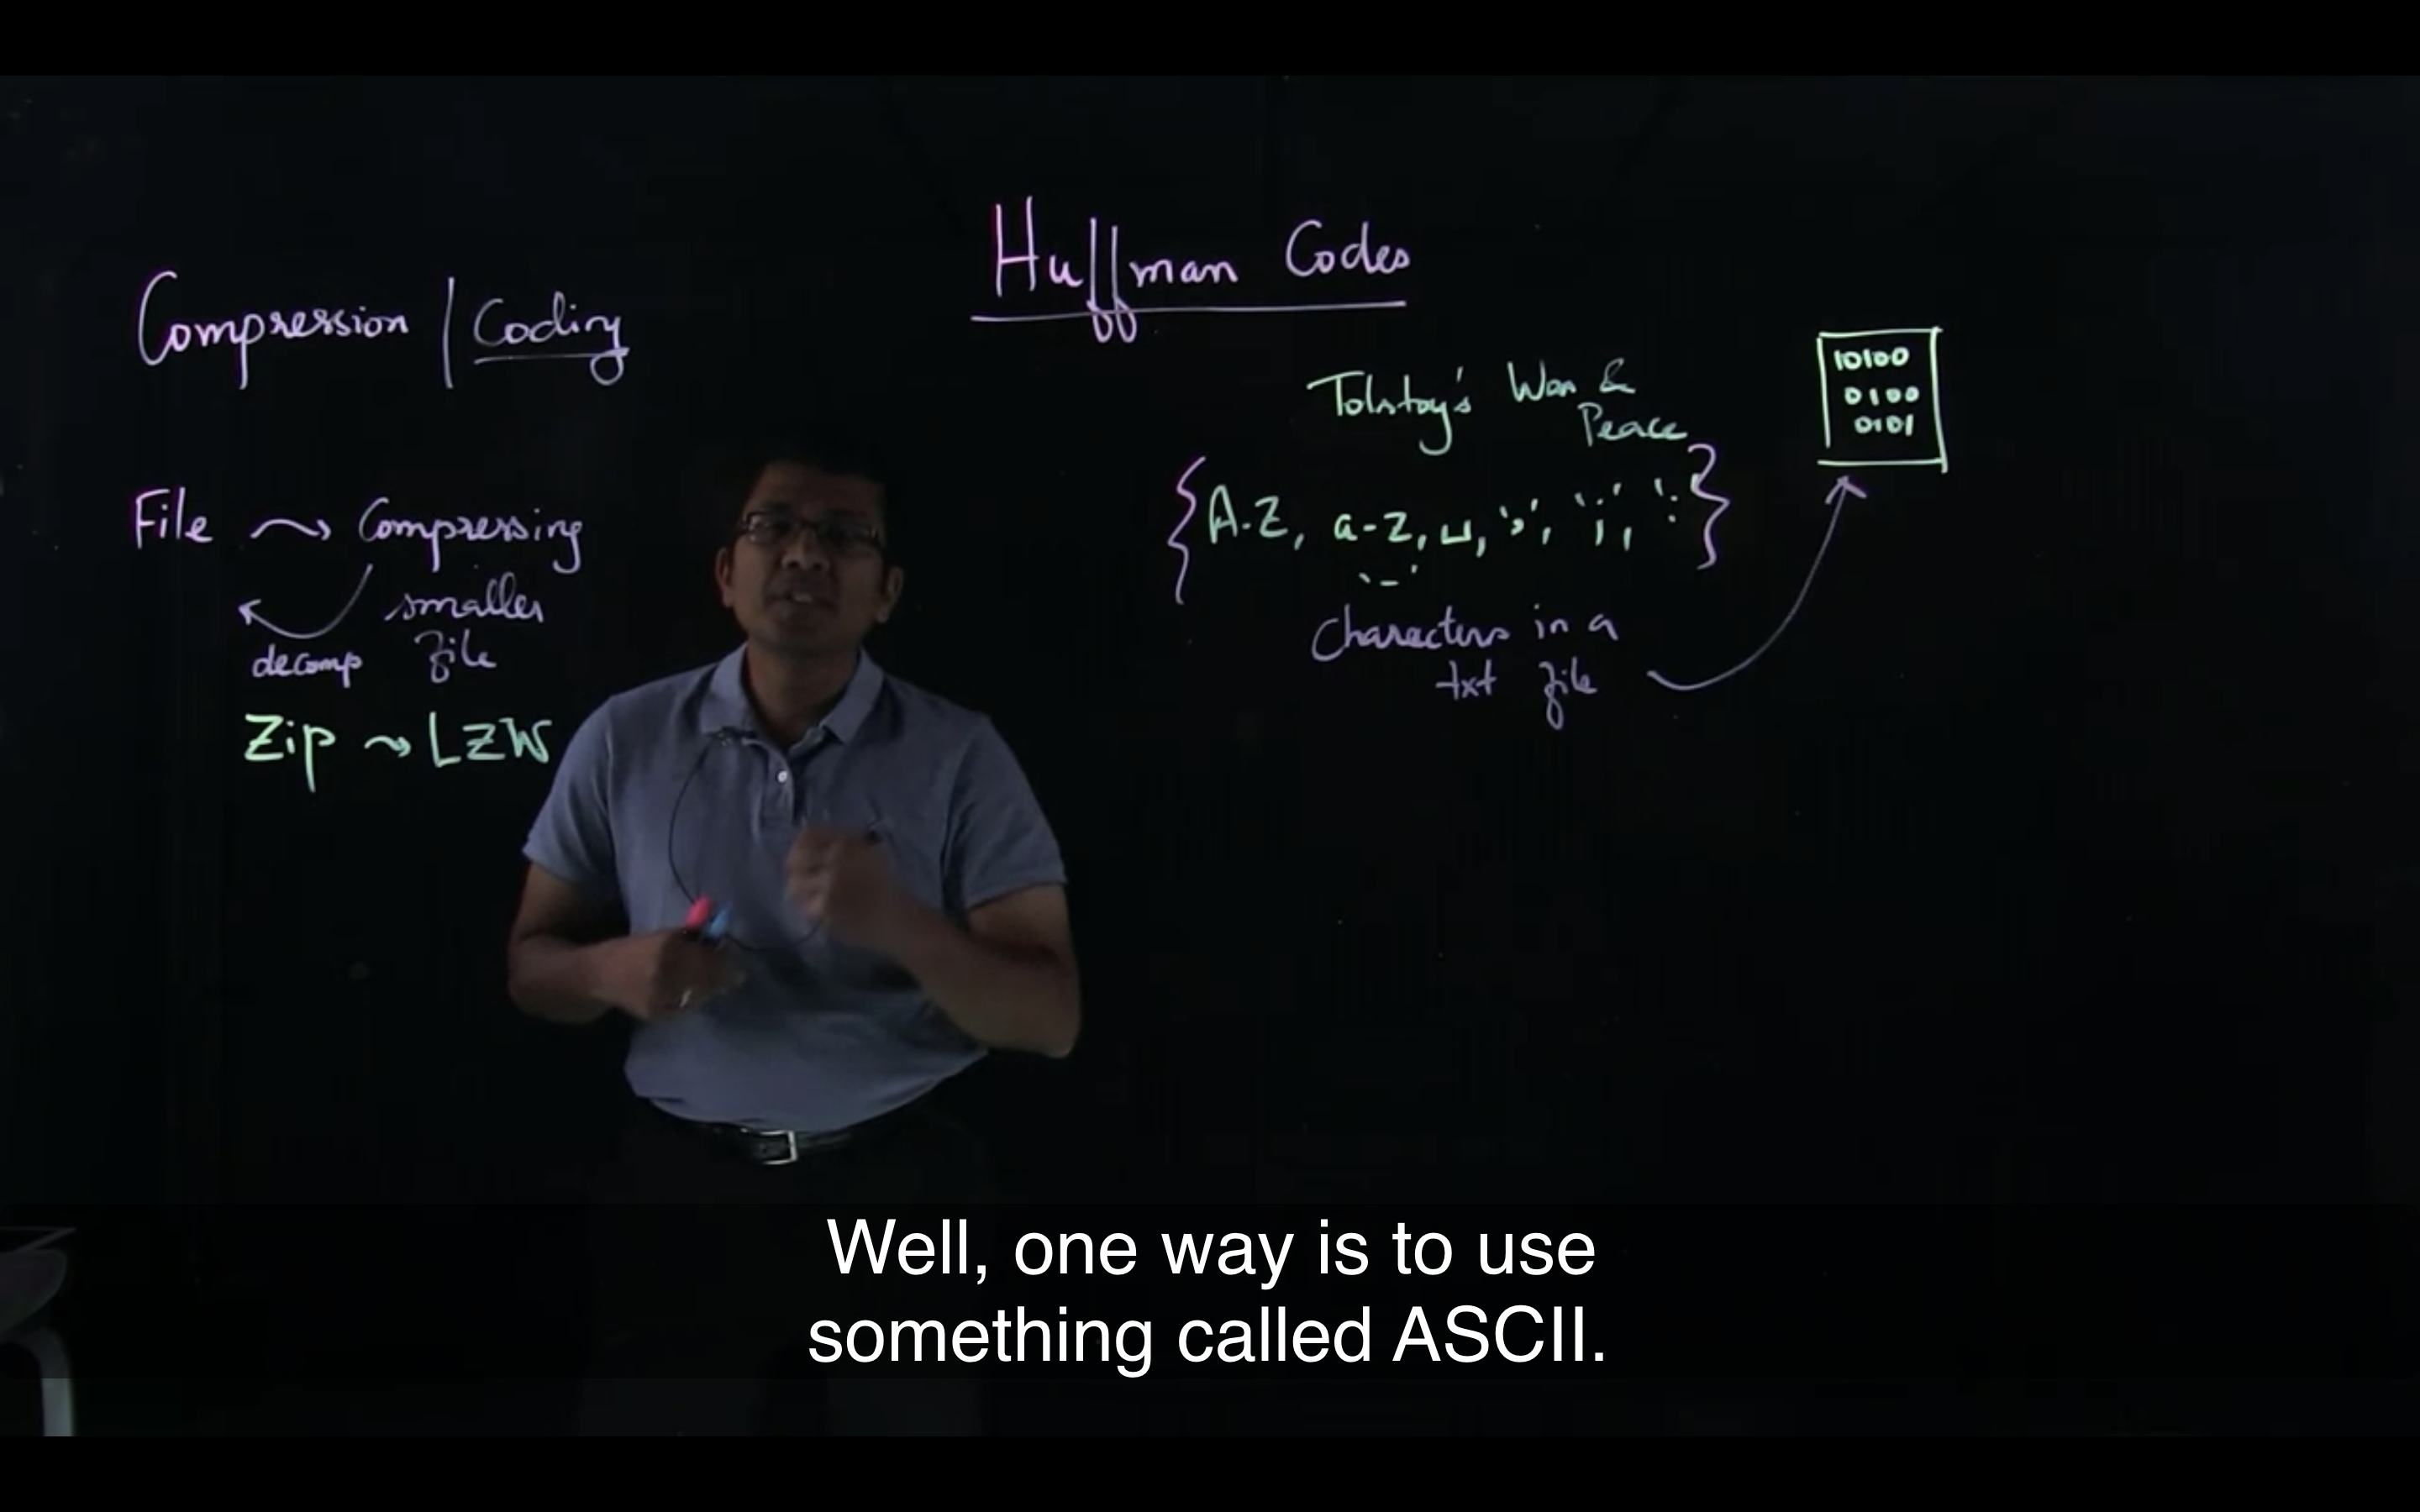 Huffman Codes
Compression | Coding
File ⤳ Compressing
smaller
file
decomp
Zip ⤳ LZW
Tolstoy's War &
Peace
{A-Z, a-z, ␣, ',', ';', ':'}
'-'
Characters in a
txt file
10100
0100
0101
Well, one way is to use
something called ASCII.